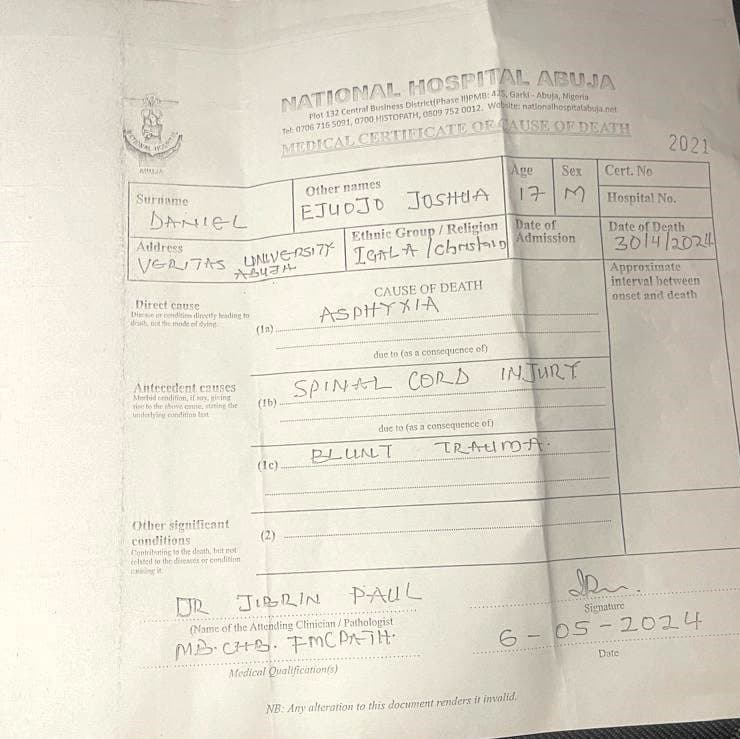 NATIONAL HOSPITAL ABUJA
Plot 132 Central Business District(Phase II)PMB: 425, Garki - Abuja, Nigeria
Tel: 0706 716 5091, 0700 HISTOPATH, 0809 752 0012. Website: nationalhospitalabuja.net
MEDICAL CERTIFICATE OF CAUSE OF DEATH
2021
ABUJA
Surname
DANIEL
Other names
EJUOJO JOSHUA
Age
17
Sex
M
Cert. No
Hospital No.
Address
VERITAS UNIVERSITY
ABUJA
Ethnic Group / Religion
IGALA /
Date of
Admission
Date of Death
30/4/2024
CAUSE OF DEATH
Approximate
interval between
onset and death
Direct cause
Disease or condition directly leading to
death, not the mode of dying
(1a)
ASPHYXIA
due to (as a consequence of)
Antecedent causes
Morbid condition, if any, giving
rise to the above cause, stating the
underlying condition last
(1b)
SPINAL CORD INJURY
due to (as a consequence of)
(1c)
BLUNT TRAUMA.
Other significant
conditions
Contributing to the death, but not
related to the diseases or condition
causing it
(2)
DR JIBRIN PAUL
(Name of the Attending Clinician / Pathologist
MB.CHB. FMCPATH.
Medical Qualification(s)
Signature
6-05-2024
Date
NB: Any alteration to this document renders it invalid.